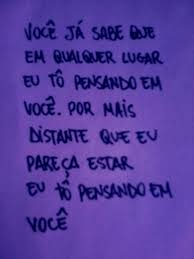 VOCÊ JÁ SABE QUE
EM QUALQUER LUGAR
EU TÔ PENSANDO EM
VOCÊ. POR MAIS
DISTANTE QUE EU
PAREÇA ESTAR
EU TÔ PENSANDO EM
VOCÊ